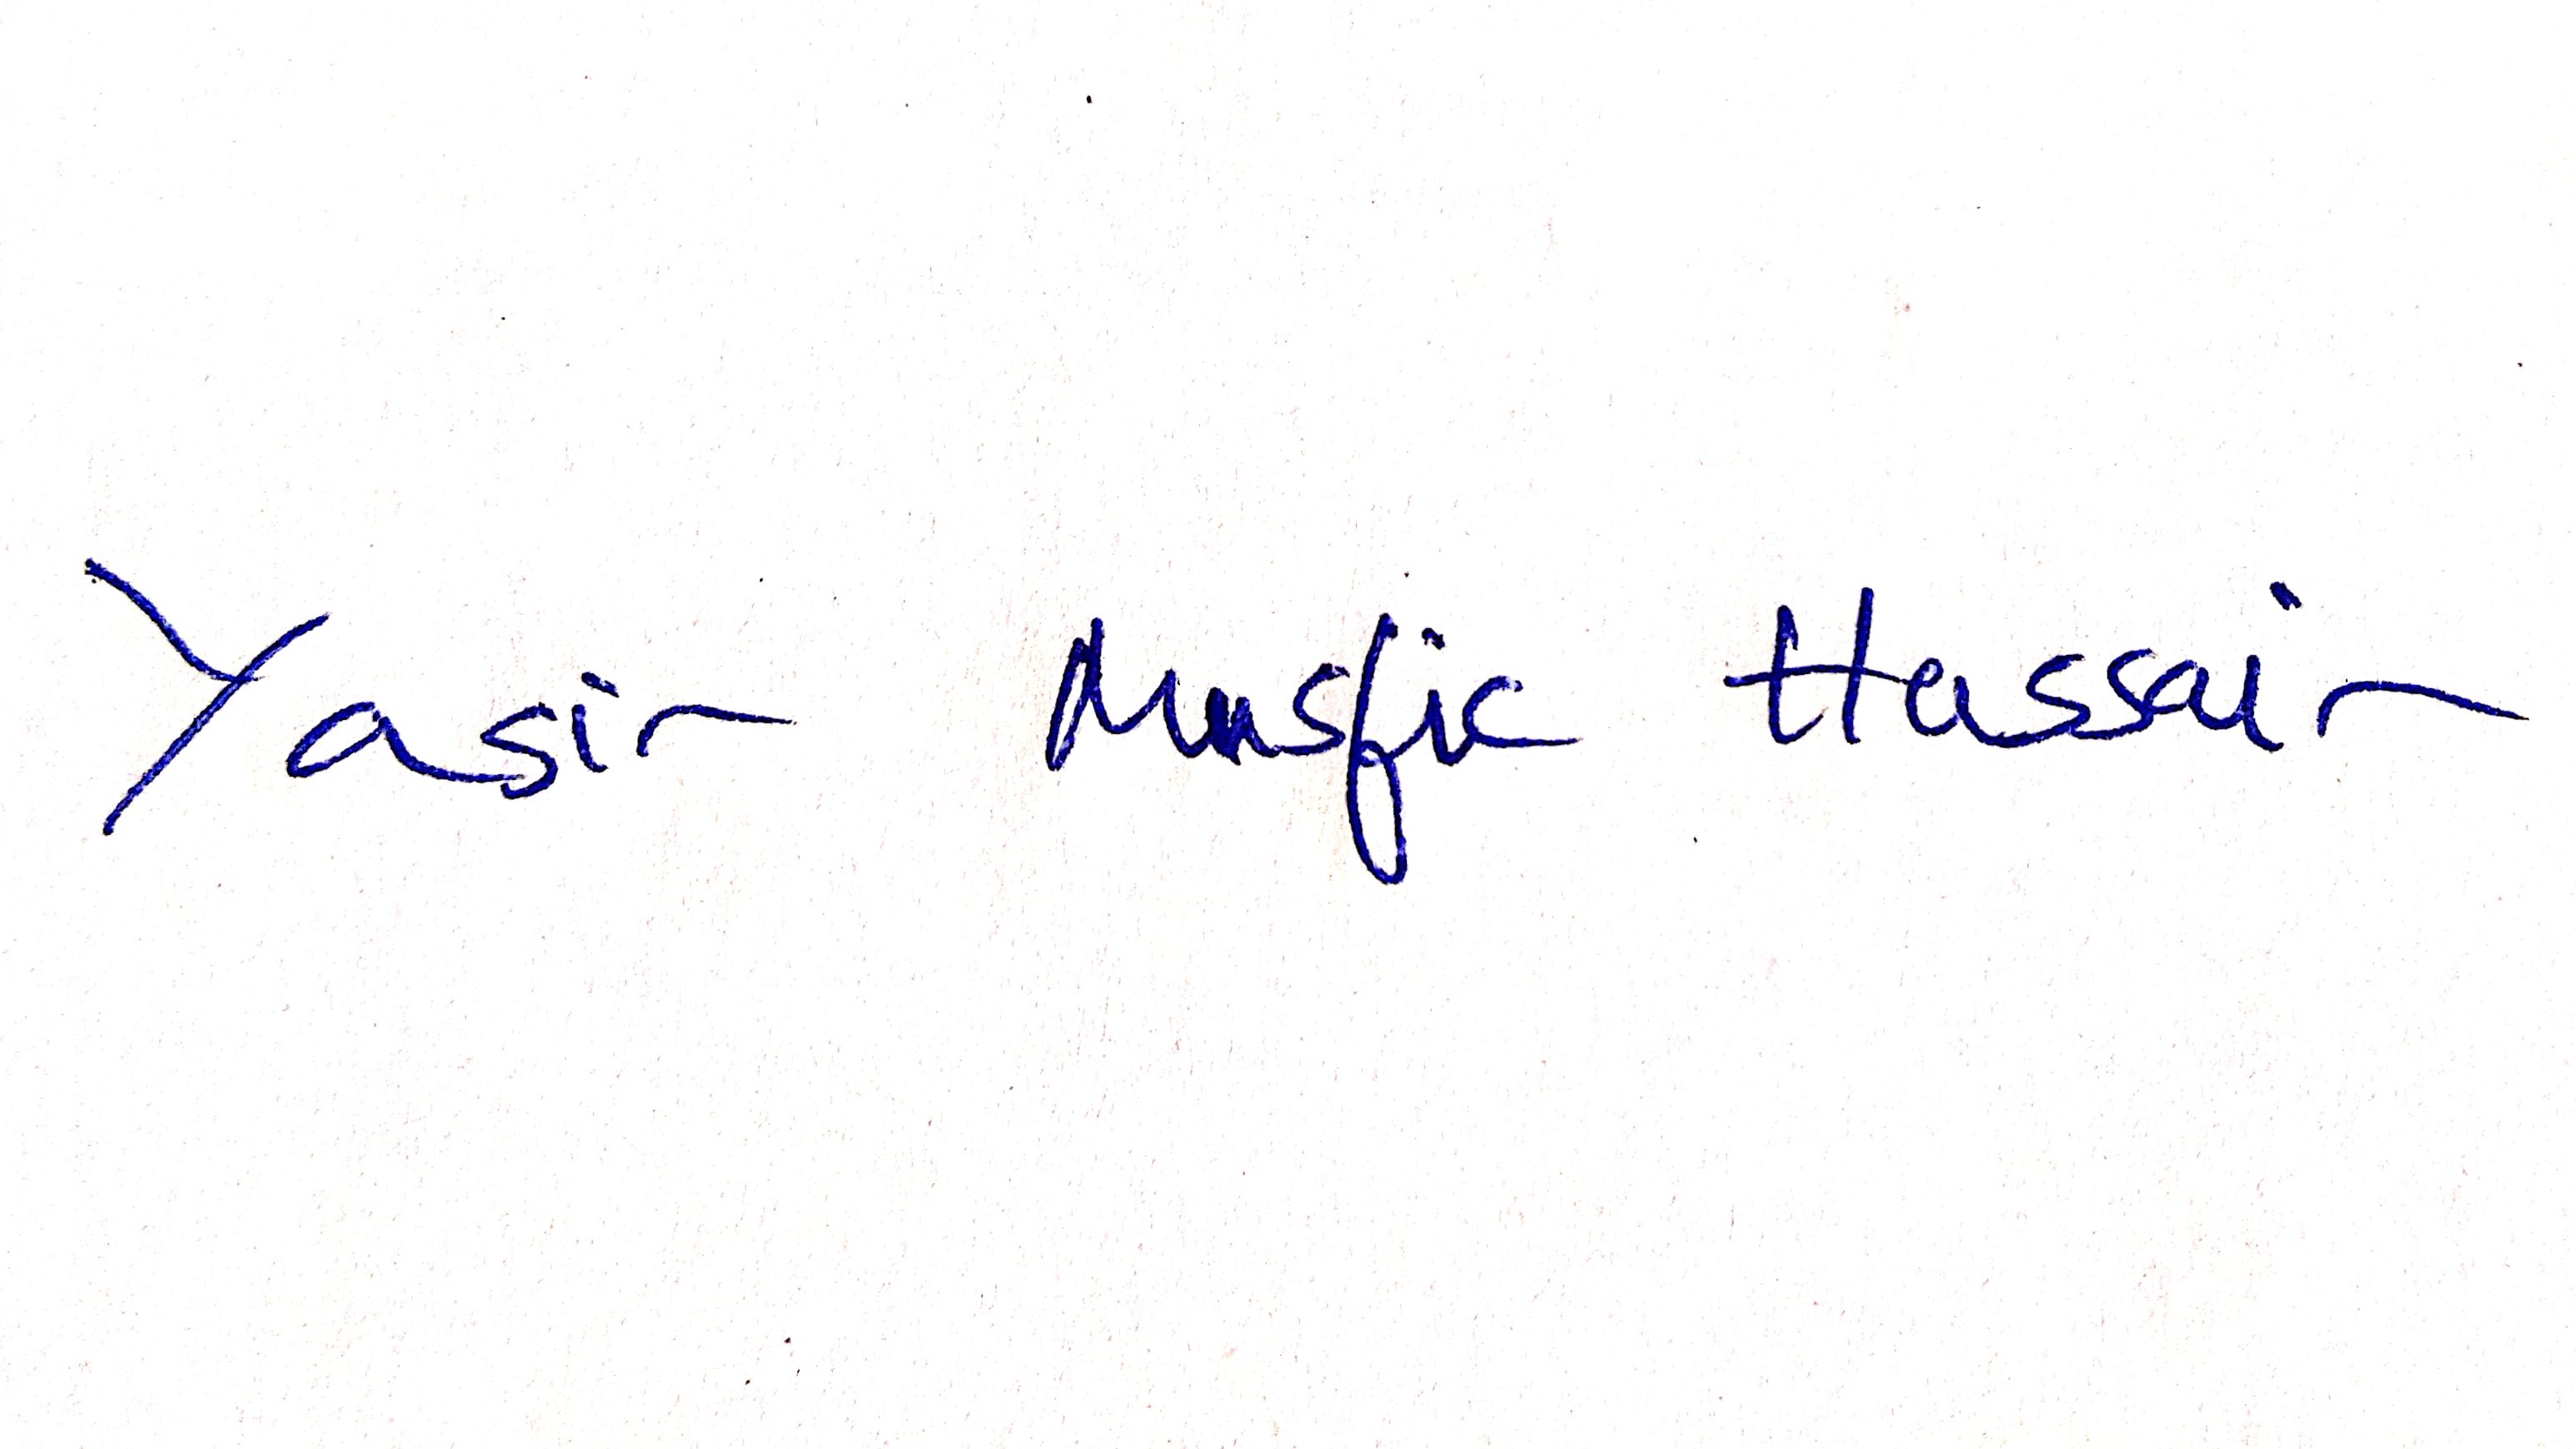 Yasir Musfic Hussain